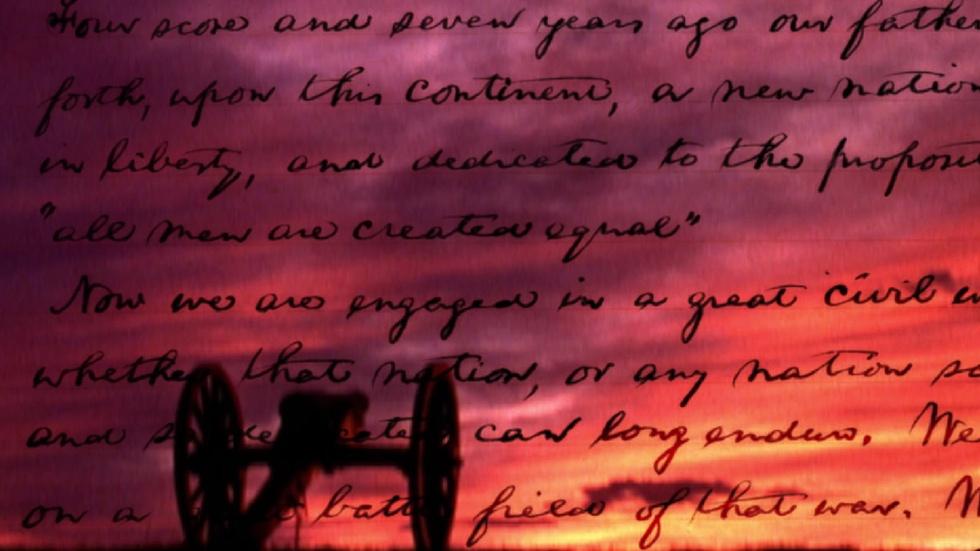 Four score and seven years ago our fathe
forth, upon this continent, a new nation
in liberty, and dedicated to the proposit
"all men are created equal"
Now we are engaged in a great civil w
whether that nation, or any nation so
and so dedicated can long endure. We
on a battle field of that war.